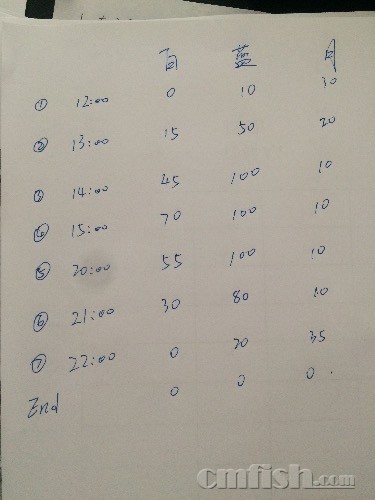 白 蓝 月
① 12:00 0 10 30
② 13:00 15 50 20
③ 14:00 45 100 10
④ 15:00 70 100 10
⑤ 20:00 55 100 10
⑥ 21:00 30 80 10
⑦ 22:00 0 20 35
End 0 0 0.
cmfish.com